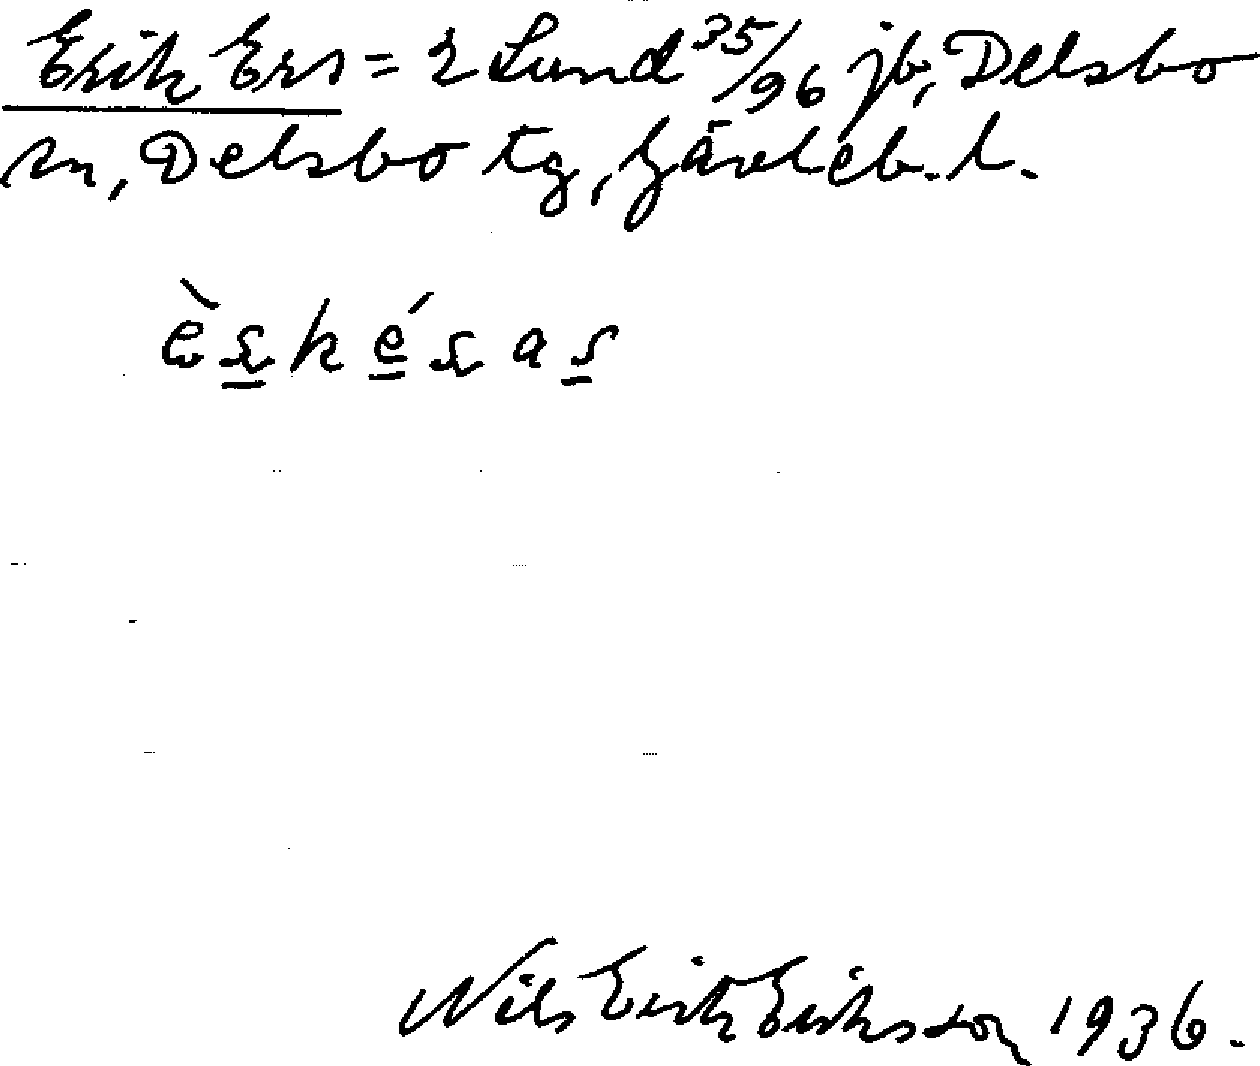 Erik Ers = 2 Lund 35/96 jb, Delsbo
sn, Delsbo tg, Gävleb. l.
Nils Erik Eriksson 1936.